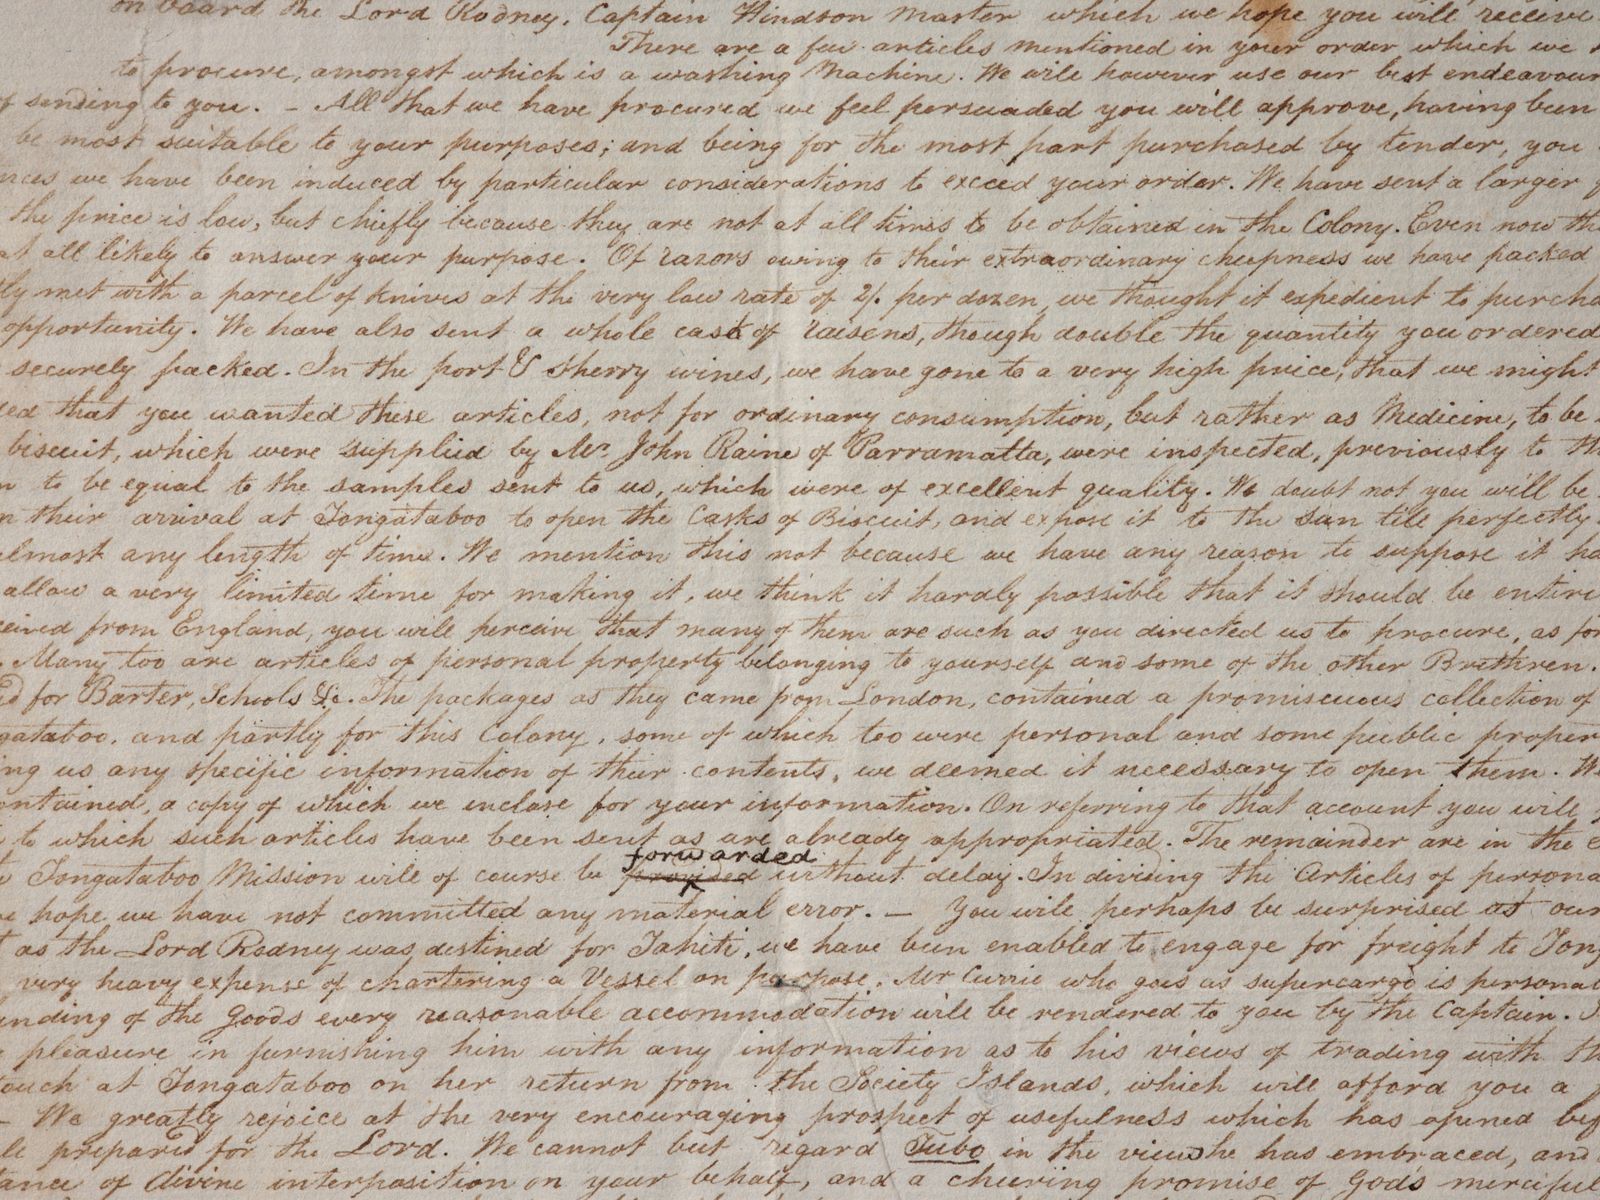 on board the Lord Rodney, Captain Hindson Master which we hope you will receive
There are a few articles mentioned in your order which we
to procure, amongst which is a washing Machine. We will however use our best endeavour
of sending to you. – All that we have procured we feel persuaded you will approve, having been
be most suitable to your purposes; and being for the most part purchased by tender, you
nces we have been induced by particular considerations to exceed your order. We have sent a larger
the price is low, but chiefly because they are not at all times to be obtained in the Colony. Even now the
at all likely to answer your purpose. Of razors owing to their extraordinary cheepness we have packed
ly met with a parcel of knives at the very low rate of 2/. per dozen, we thought it expedient to purcha
opportunity. We have also sent a whole cask of raisens, though double the quantity you ordered
securely packed. In the port & Sherry wines, we have gone to a very high price, that we might
ed that you wanted these articles, not for ordinary consumption, but rather as Medicine, to be
biscuit, which were supplied by Mr. John Raine of Parramatta, were inspected, previously to th
n to be equal to the samples sent to us, which were of excellent quality. We doubt not you will be
n their arrival at Tongataboo to open the Casks of Biscuit, and expose it to the Sun till perfectly
almost any length of time. We mention this not because we have any reason to suppose it ha
allow a very limited time for making it, we think it hardly possible that it should be entire
ceived from England, you will perceive that many of them are such as you directed us to procure, as for
Many too are articles of personal property belonging to yourself and some of the other Brethren.
ed for Barter, Schools &c. The packages as they came from London, contained a promiscuous collection of
gataboo, and partly for this Colony, some of which too were personal and some public proper
ing us any specific information of their contents, we deemed it necessary to open them. We
ontained, a copy of which we inclose for your information. On referring to that account you will
to which such articles have been sent as are already appropriated. The remainder are in the
forwarded
Tongataboo Mission will of course be provided without delay. In dividing the Articles of persona
we hope we have not committed any material error. – You will perhaps be surprised at our
t as the Lord Rodney was destined for Tahiti, we have been enabled to engage for freight to Tong
very heavy expense of chartering a Vessel on purpose. Mr Currie who goes as supercargo is personal
anding of the Goods every reasonable accommodation will be rendered to you by the Captain.
pleasure in furnishing him with any information as to his views of trading with th
touch at Tongataboo on her return from the Society Islands, which will afford you a
– We greatly rejoice at the very encouraging prospect of usefulness which has opened bef
le prepared for the Lord. We cannot but regard Tubo in the views he has embraced, and
tance of divine interposition on your behalf, and a cheering promise of Gods merciful